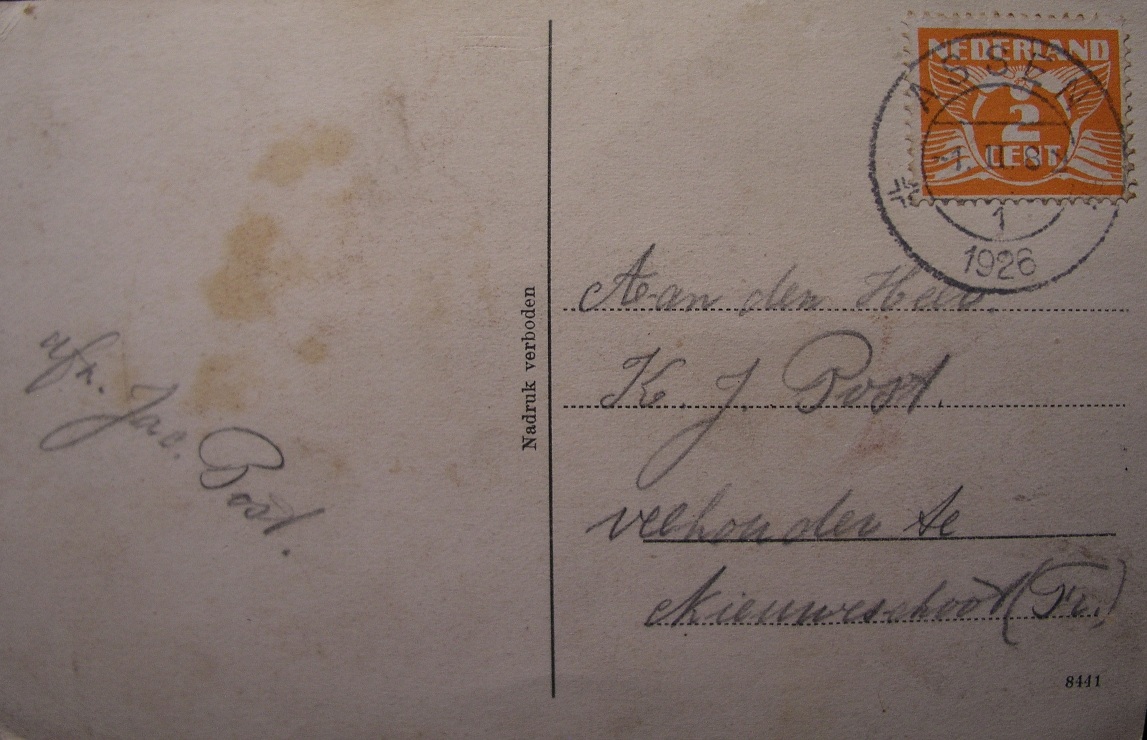 afz. Jac. Post.
Nadruk verboden
NEDERLAND
2
CENT
ASSEN
1
1926
Aan den Heer
K. J. Post.
veehouder te
Nieuweschoot (Fr.)
8441